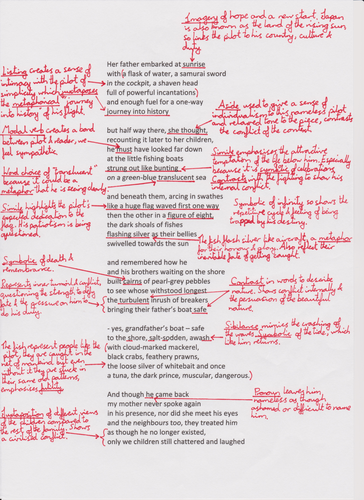 Imagery of hope and a new start, Japan
is also known as the land of the rising sun
so links the pilot to his country, culture &
duty
Listing creates a sense of
intimacy with the pilot of
simplicity which
metaphorical journey
into history of his flight
Modal verb creates a bond
between pilot & reader, we
feel sympathetic
Word choice of 'translucent'
because it could be a
metaphor that he is seeing clearly.
Simile highlights the pilot's
dedication to the
flag. His patriotism is being
questioned.
Symbolic of death &
remembrance.
Represent inner turmoil & conflict,
questioning the strength to fight
fate & the pressure on him to
do his duty.
The fish represent people like the
pilot, they are caught in the
net of manipulation but even
without it they are stuck in
their same old patterns,
emphasises futility
Juxtaposition of different views
of the children compared to
the rest of the family. Shows
a civilised conflict.
Her father embarked at sunrise
with a flask of water, a samurai sword
in the cockpit, a shaven head
full of powerful incantations
and enough fuel for a one-way
journey into history
but half way there, she thought,
recounting it later to her children,
he must have looked far down
at the little fishing boats
strung out like bunting
on a green-blue translucent sea
and beneath them, arcing in swathes
like a huge flag waved first one way
then the other in a figure of eight,
the dark shoals of fishes
flashing silver as their bellies
swivelled towards the sun
and remembered how he
and his brothers waiting on the shore
built cairns of pearl-grey pebbles
to see whose withstood longest
the turbulent inrush of breakers
bringing their father's boat safe
- yes, grandfather's boat – safe
to the shore, salt-sodden, awash
with cloud-marked mackerel,
black crabs, feathery prawns,
the loose silver of whitebait and once
a tuna, the dark prince, muscular, dangerous.
And though he came back
my mother never spoke again
in his presence, nor did she meet his eyes
and the neighbours too, they treated him
as though he no longer existed,
only we children still chattered and laughed
Aside used to give a sense of
individualism to this nameless pilot
and relaxed tone to the piece, contrasts
the conflict of the context
Simile emphasises the attractive
temptation of the life below him. Especially
because it is symbolic of celebrations
contrasts with the fighting to show his
internal conflict
Symbolic of infinity so shows the
repetitive cycle & feeling of being
trapped by his destiny.
The fish flash silver like a sword, a metaphor
for honour and glory. Also reflect their
inevitable fate of getting caught
Contrast in words to describe
nature. Show conflict internally &
the persuasion of the beautiful
nature.
Sibilance mimics the crashing of
the waves. Symbolic of the tide, which
like him returns.
Pronoun leaves him
nameless as though
ashamed or difficult to name
him.